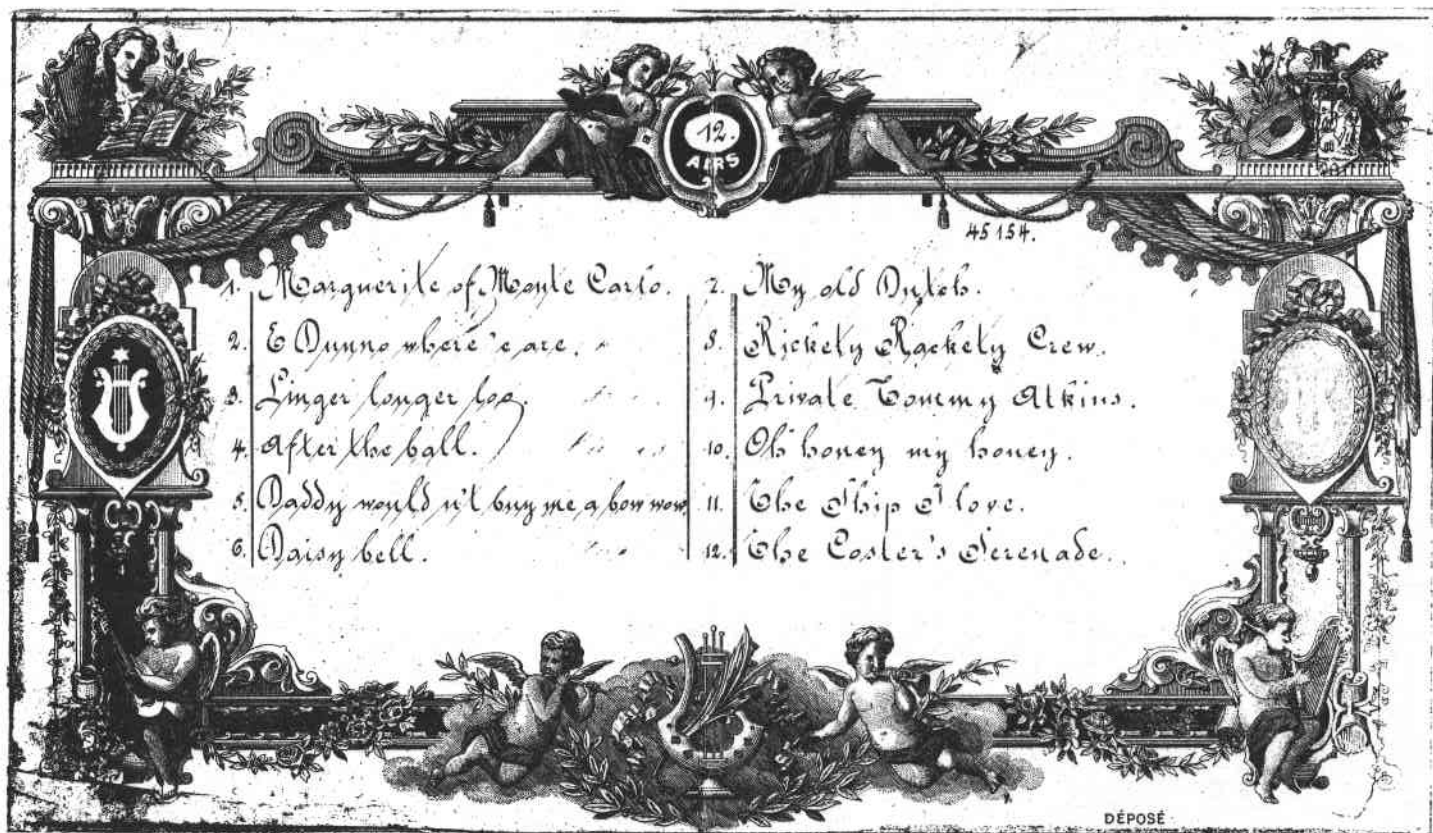 12.
AIRS
45154.
1. Marguerite of Monte Carlo.
2. E Dunno where 'e are.
3. Linger longer loo.
4. After the ball.
5. Daddy would n't buy me a bow wow.
6. Daisy bell.
7. My old Dutch.
8. Rickety Rackety Crew.
9. Private Tommy Atkins.
10. Oh honey my honey.
11. The Ship I love.
12. The Coster's Serenade.
DÉPOSÉ